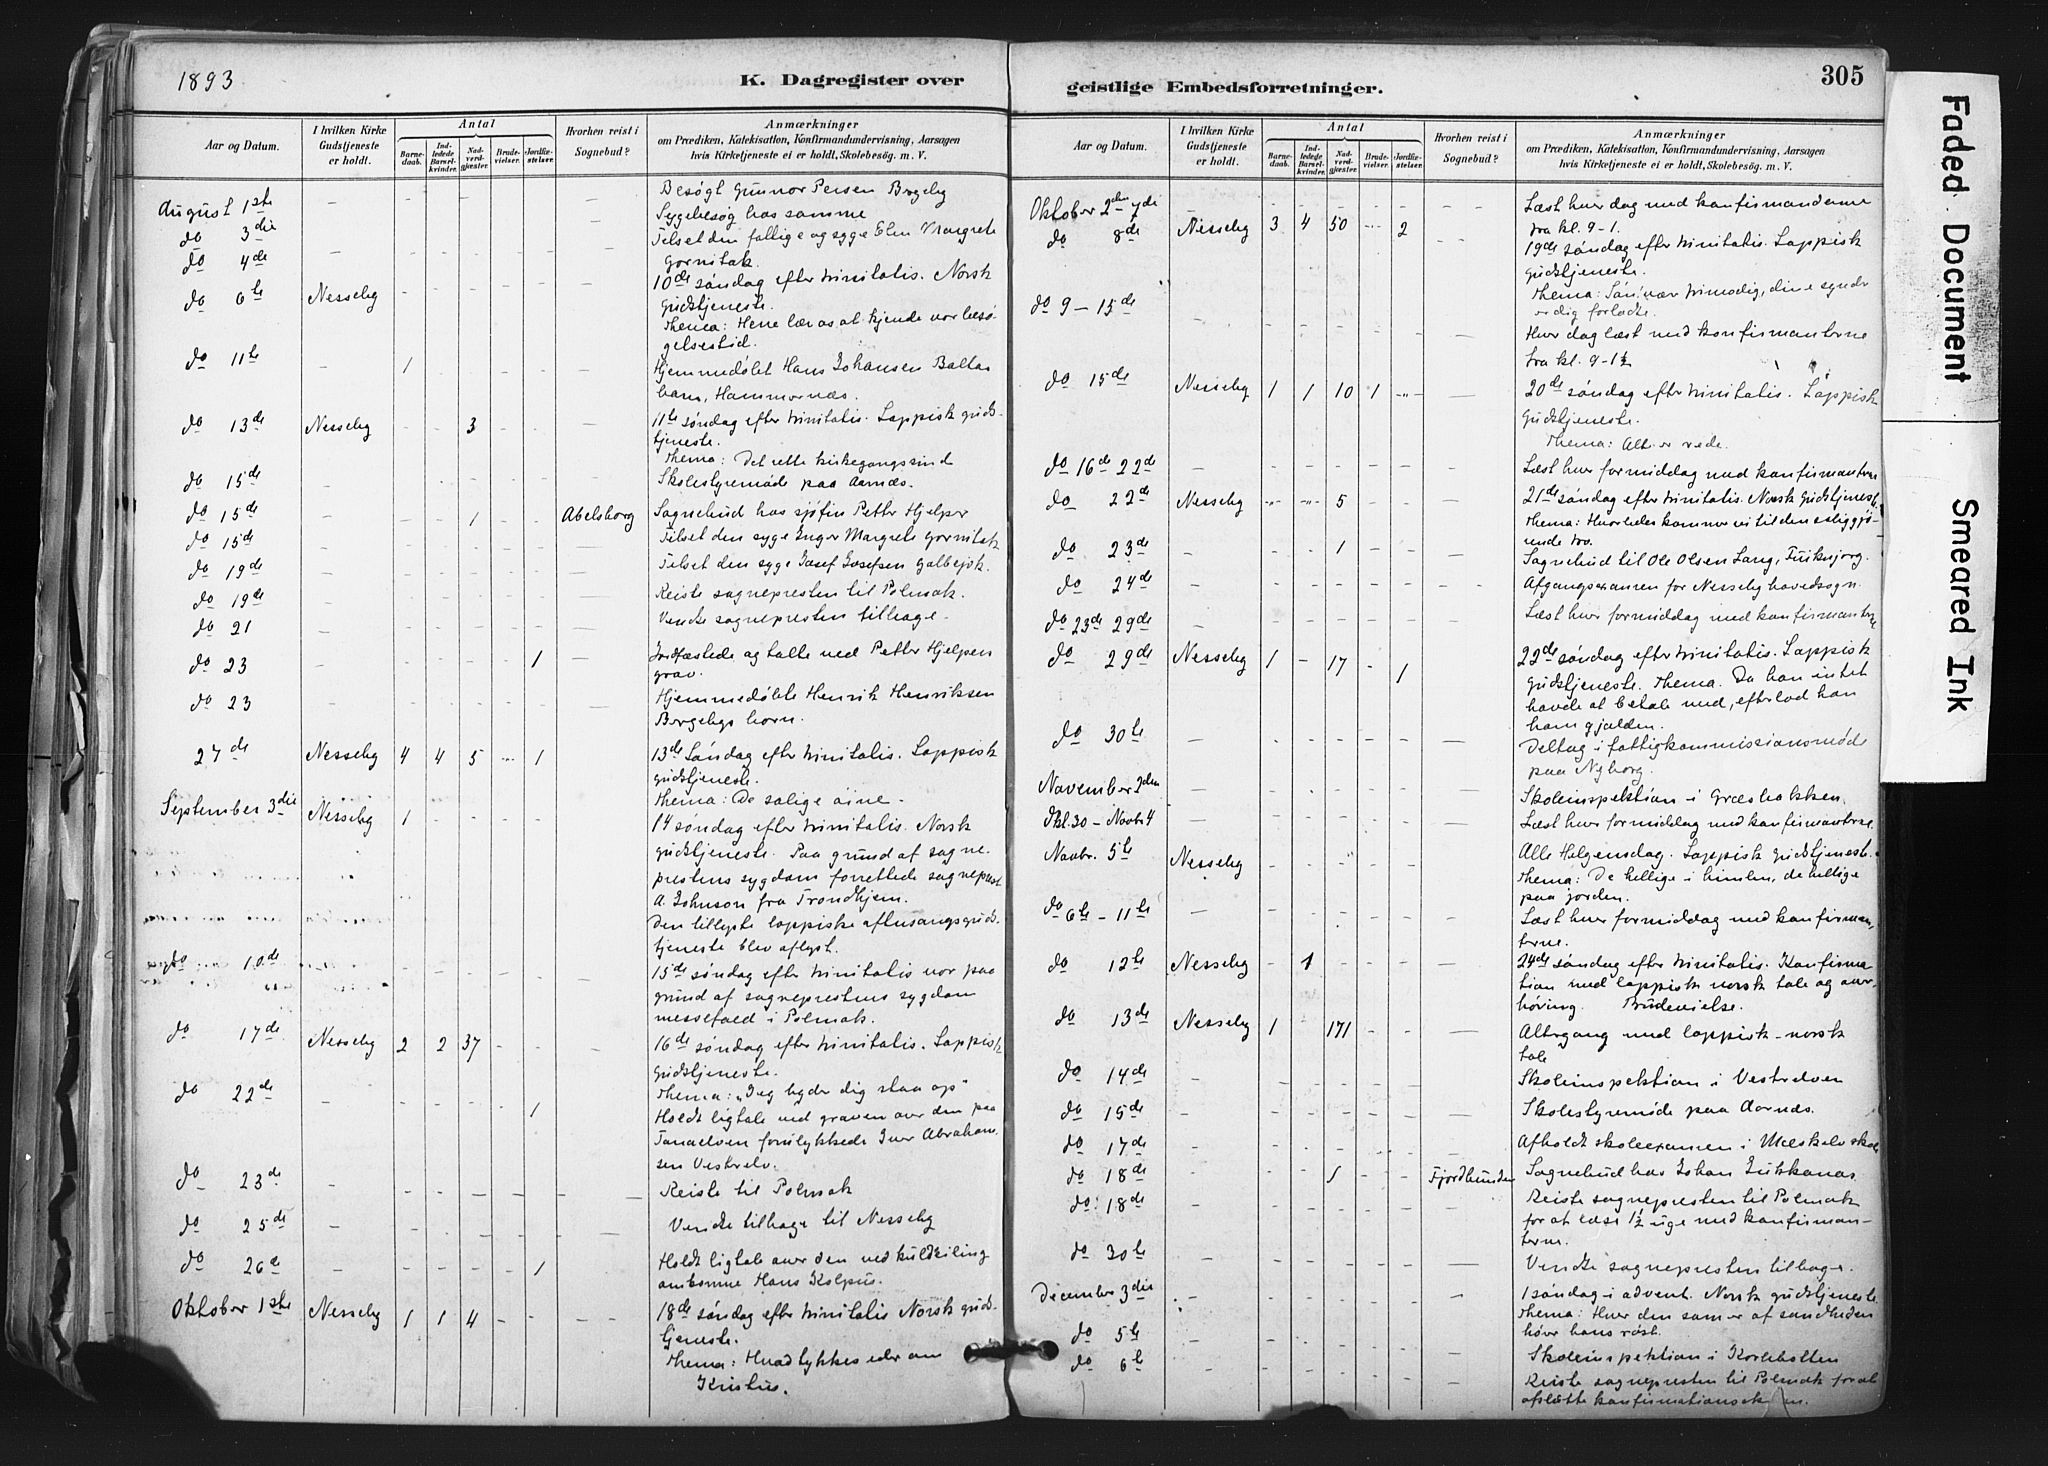 1893
K. Dagregister over
Aar og Datum.
I hvilken Kirke Gudstjeneste er holdt.
Antal
Barnedaab.
Indledede Barselkvinder.
Nadverdgjæster.
Brudevielser.
Jordfæstelser.
Hvorhen reist i Sognebud?
Anmærkninger
om Prædiken, Katekisation, Konfirmandundervisning, Aarsagen
hvis Kirketjeneste ei er holdt, Skolebesøg. m. V.
August 1ste Besøgt Gunnor Persen Bergeby
do 3die Sygebesøg hos samme
do 4de Tilset den fattige og syge Elen Margrete
Gornitak
do 6te Nesseby 10de søndag efter trinitatis. Norsk
gudstjeneste.
Thema: Herre lær os at kjende vor besø-
gelsestid.
do 11te 1 Hjemmedøbt Hans Johansen Balto
barn, Hammernæs.
do 13de Nesseby 3 11te søndag efter trinitatis. Lappisk guds-
tjeneste.
Thema: Det rette kirkegangssind
do 15de Skolestyremøde paa Aarnæs.
do 15de 1 Abelsborg Sognebud hos sjøfin Petter Hjelper
do 15de Tilset den syge Inger Margrete Gornitak
do 19de Tilset den syge Josef Josefsen Galbejok.
do 19de Reiste sognepresten til Polmak.
do 21 Vendte sognepresten tilbage.
do 23 1 Jordfæstede og talte ved Petter Hjelpers
grav.
do 23 Hjemmedøbte Henrik Henriksen
Bergebys barn.
27de Nesseby 4 4 5 1 13de Søndag efter trinitatis. Lappisk
gudstjeneste.
Thema: De salige øine.
September 3die Nesseby 1 14 søndag efter trinitatis. Norsk
gudstjeneste. Paa grund af sogne-
prestens sygdom forrettede sogneprest
A. Johnson fra Trondhjem.
Den tillyste lappiske aftensangsguds-
tjeneste blev aflyst.
do 10de 15de søndag efter trinitatis var paa
grund af sogneprestens sygdom
messefald i Polmak.
do 17de Nesseby 2 2 37 16de søndag efter trinitatis. Lappisk
gudstjeneste.
Thema: „Jeg byder dig staa op"
do 22de 1 Holdt ligtale ved graven over den paa
Tanaelven forulykkede Iver Abraham-
sen Vestrelv.
do 23de Reiste til Polmak
do 25de Vendte tilbage til Nesseby
do 26de 1 Holdt ligtale over den ved kuldseiling
omkomne Hans Kolpus.
Oktober 1ste Nesseby 1 1 4 18de søndag efter trinitatis Norsk guds-
tjeneste.
Thema: Hvad tykkes eder om
Kristus.
geistlige Embedsforretninger.
305
Aar og Datum.
I hvilken Kirke Gudstjeneste er holdt.
Antal
Barnedaab.
Indledede Barselkvinder.
Nadverdgjæster.
Brudevielser.
Jordfæstelser.
Hvorhen reist i Sognebud?
Anmærkninger
om Prædiken, Katekisation, Konfirmandundervisning, Aarsagen
hvis Kirketjeneste ei er holdt, Skolebesøg. m. V.
Oktober 2den 7de Læst hver dag med konfirmanderne
fra kl. 9-1.
do 8de Nesseby 3 4 50 2 19de søndag efter trinitatis. Lappisk
gudstjeneste.
Thema: Søn, vær frimodig, dine synder
er dig forladte.
do 9 – 15de Hver dag læst med konfirmanterne
fra kl. 9-1½
do 15de Nesseby 1 1 10 1 20de søndag efter trinitatis. Lappisk
gudstjeneste.
Thema: Alt er rede.
do 16de 22de Læst hver formiddag med konfirmanterne
do 22de Nesseby 5 21de søndag efter trinitatis. Norsk gudstjenest.
Thema: Hvorledes kommer vi til den saliggjø-
rende tro.
do 23de 1 Sognebud til Ole Olsen Lang,
do 24de Afgangsexamen for Nesseby hovedsogn.
do 23de 29de Læst hver formiddag med konfirmanterne
do 29de Nesseby 1 17 1 22de søndag efter trinitatis. Lappisk
gudstjeneste. Thema. Da han intet
havde at betale med, efterlod han
ham gjælden.
do 30te Deltog i fattigkommissionsmøde
paa Nyborg.
November 2den Skoleinspektion i Græsbakken.
Okt. 30 – Novbr. 4 Læst hver formiddag med konfirmanterne.
Novbr. 5te Nesseby Alle Helgensdag. Lappisk gudstjeneste.
Thema: De hellige i himlen, de hellige
paa jorden.
do 6te – 11te Læst hver formiddag med konfirman-
terne.
do 12te Nesseby 1 24de søndag efter trinitatis. Konfirma-
tion med lappisk norsk tale og over-
høring. Brudevielse.
do 13de Nesseby 1 171 Altergang med lappisk-norsk
tale
do 14de Skoleinspektion i Vestrelven
do 15de Skolestyremøde paa Aarnæs.
do 17de Afholdt skoleexamen i Mæskelv skole
do 18de 1 Fjordbunden Sognebud hos Johan
do 18de Reiste sognepresten til Polmak
for at læse 1½ uge med konfirman-
terne.
do 30te Vendte sognepresten tilbage.
December 3die 1 søndag i advent. Norsk gudstjeneste.
Thema: Hver den som er af sandheden
hører hans røst.
do 5te Skoleinspektion i Karlebotten
do 6te Reiste sognepresten til Polmak for at
afslutte
Faded Document
Smeared Ink